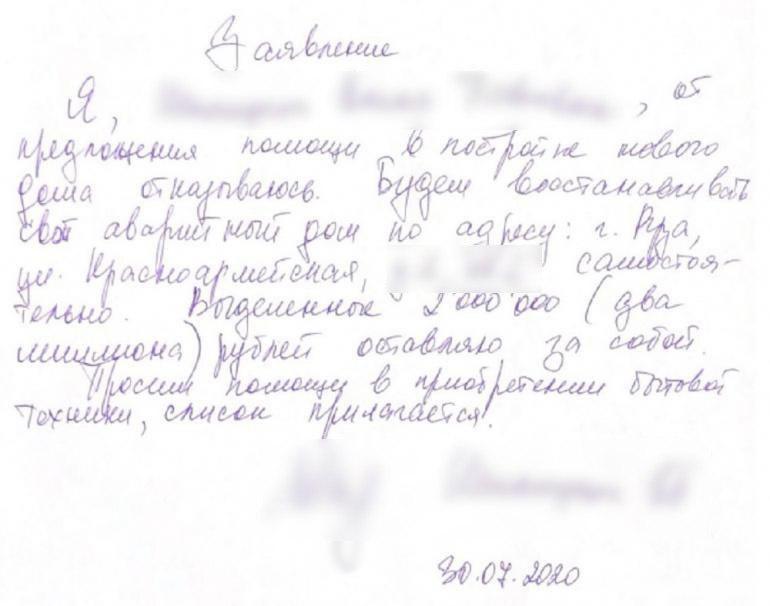 Заявление
Я, , от
предложения помощи в постройке нового
дома отказываюсь. Будем восстанавливать
свой аварийный дом по адресу: г. Руза,
ул. Красноармейская, самостоя-
тельно. Выделенные 2'000'000 (два
миллиона) рублей оставляю за собой.
Просим помощи в приобретении бытовой
техники, список прилагается.
30.07.2020